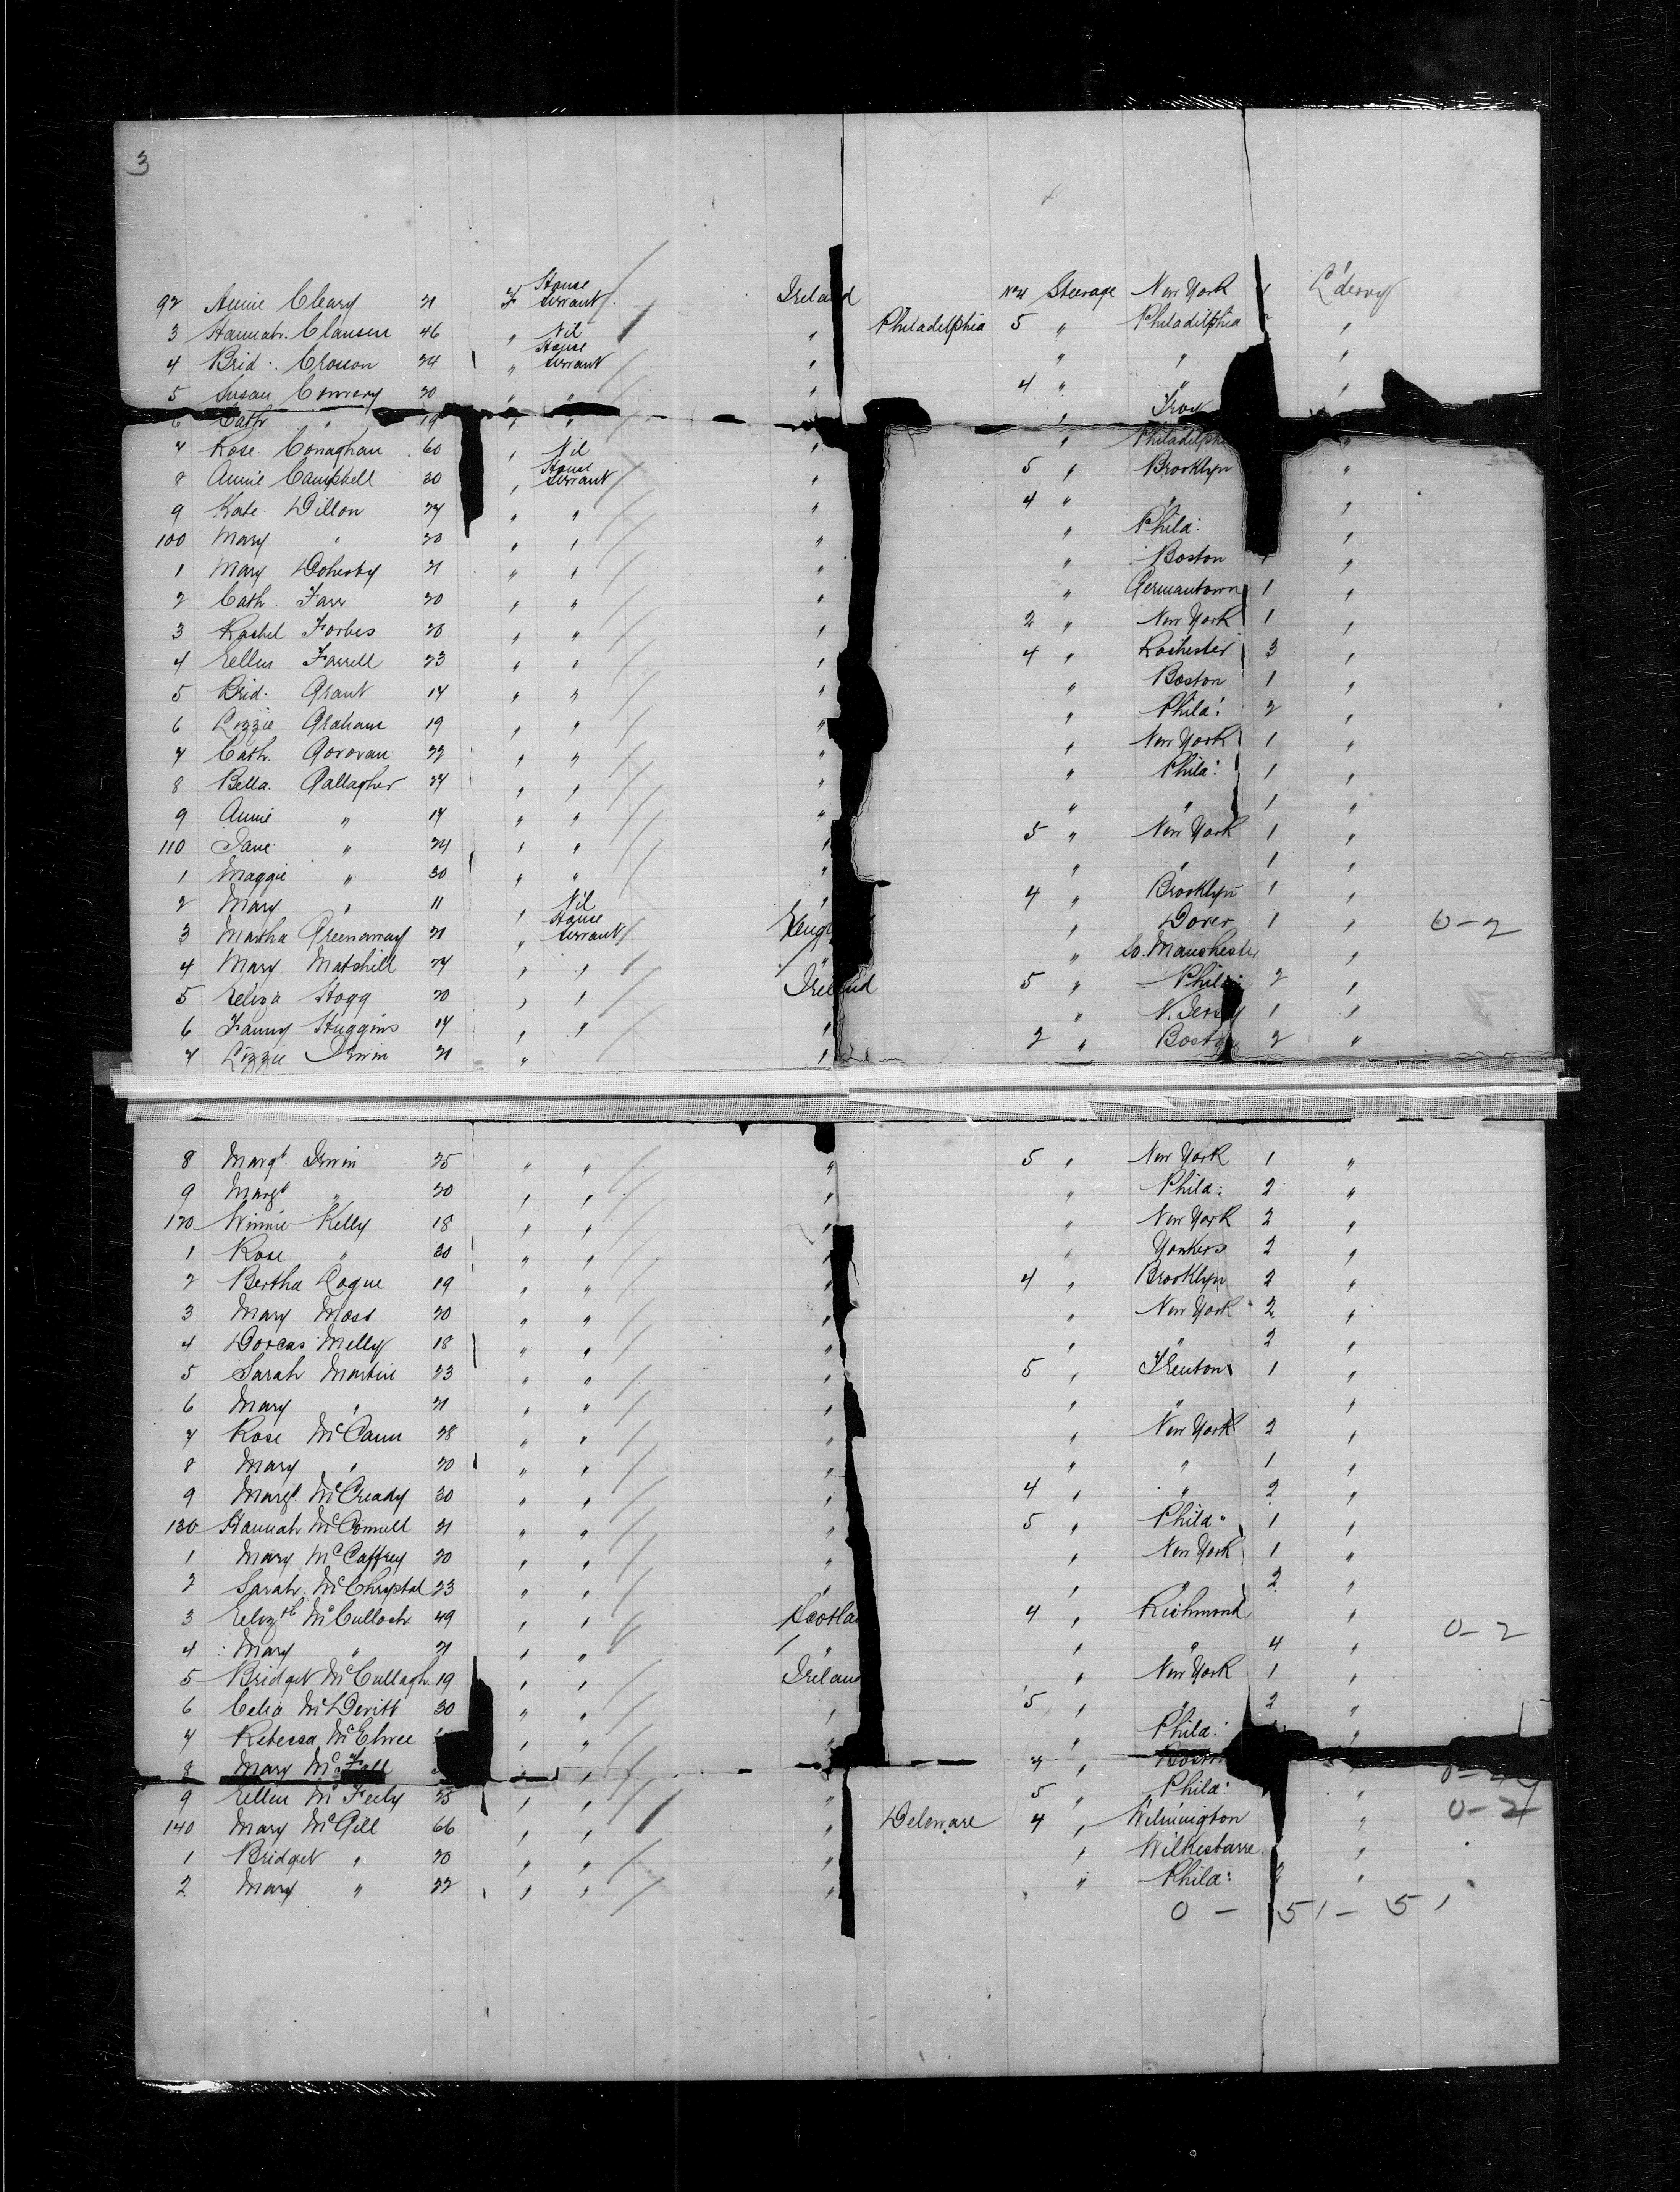 3
92 Annie Cleary 21 F House Servant Ireland No 4 Steerage New York 1 L'derry
3 Hannah Clausen 46 " Nil " Philadelphia 5 " Philadelphia "
4 Brid. Crosson 24 " House Servant " " " "
5 Susan Conway 20 " " " 4 " " "
6 Cath " 19 " " " Troy
7 Rose Conaghan 60 " Nil " " Philadelphi "
8 Annie Campbell 30 " House Servant " 5 " Brooklyn "
9 Kate Dillon 24 " " " 4 " " "
100 Mary " 20 " " " " Phila: "
1 Mary Doherty 21 " " " " Boston "
2 Cath. Farr 20 " " " " Germantown 1 "
3 Rachel Forbes 26 " " " 2 " New York 1 "
4 Ellen Farrell 23 " " " 4 " Rochester 3 "
5 Brid. Grant 17 " " " " Boston 1 "
6 Lizzie Graham 19 " " " " Phila: 2 "
7 Cath. Gorovan 22 " " " " New York 1 "
8 Bella Gallagher 24 " " " " Phila: 1 "
9 Annie " 17 " " " " " 1 "
110 Jane " 24 " " " 5 " New York 1 "
1 Maggie " 30 " " " " " 1 "
2 Mary " 11 " Nil " 4 " Brooklyn 1 "
3 Martha Greenaway 21 " House Servant Eng " Dover 1 " 0-2
4 Mary Hatshill 24 " " " " So. Manchester "
5 Eliza Hogg 20 " " Ireland 5 " Phila: 2 "
6 Fanny Huggins 17 " " " " N. Jersey 1 "
7 Lizzie Irwin 21 " " 2 " Boston 2 "
8 Margt. Irwin 25 " " " 5 " New York 1 "
9 Margt " 20 " " " " Phila: 2 "
120 Winnie Kelly 18 " " " " New York 2 "
1 Rose " 30 " " " " Yonkers 2 "
2 Bertha Logue 19 " " " 4 " Brooklyn 2 "
3 Mary Moss 20 " " " " New York 2 "
4 Dorcas Melly 18 " " " " " 2 "
5 Sarah Martin 23 " " " 5 " Trenton 1 "
6 Mary " 21 " " " " " "
7 Rose McCann 28 " " " " New York 2 "
8 Mary " 20 " " " " " 1 "
9 Margt. McCready 30 " " " 4 " " 2 "
130 Hannah McConnell 21 " " " 5 " Phila " 1 "
1 Mary McCaffrey 20 " " " " New York 1 "
2 Sarah McChrystal 23 " " " " " 2 "
3 Elizth McCulloch 49 " " Scotla 4 " Richmond " 0-2
4 Mary " 21 " " " " " 4 "
5 Bridget McCullagh 19 " " Ireland " New York 1 "
6 Celia McDevitt 30 " " " 5 " " 2 "
7 Rebecca McElwee " " " " Phila: "
8 Mary McFall " " " Boston
9 Ellen McFeely 25 " " " 5 " Phila: "
140 Mary McGill 66 " " " Delaware 4 " Wilmington " 0-2
1 Bridget " 20 " " " " Wilkesbarre "
2 Mary " 22 " " " " Phila: "
0 - 51 - 51